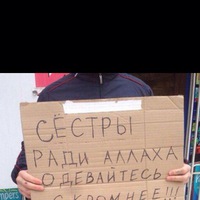 СЁСТРЫ
РАДИ АЛЛАХА
ОДЕВАЙТЕСЬ
СКРОМНЕЕ!!!
mpers